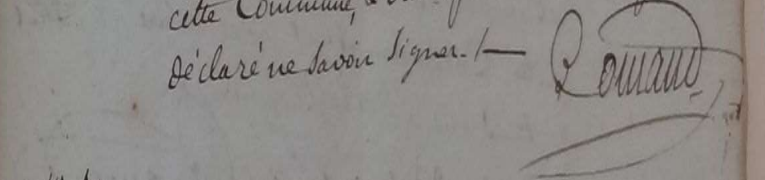 cette Commune, a
déclaré ne savoir signer. /—
Romand